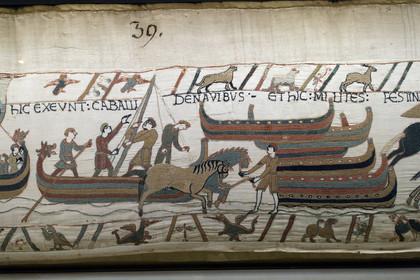 39.
HIC EXEVNT: CABALLI DENAVIBVS:- ET HIC: MILITES: FESTIN